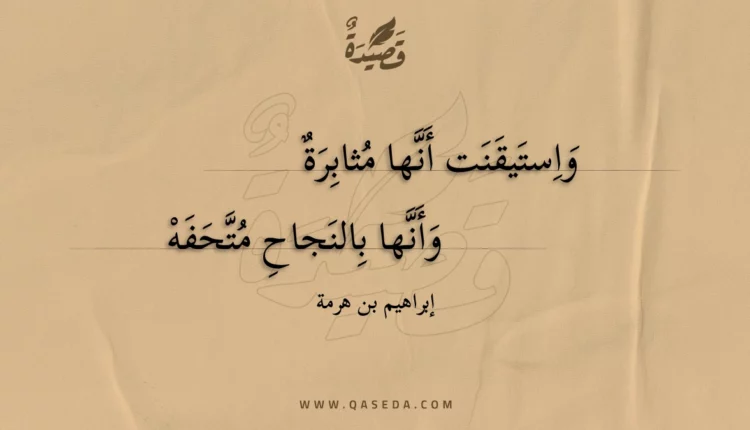 قَصِيدَةٌ
وَاِستَيقَنَت أَنَّها مُثابِرَةٌ
وَأَنَّها بِالنَجاحِ مُتَّحَفَهْ
إبراهيم بن هرمة
WWW.QASEDA.COM